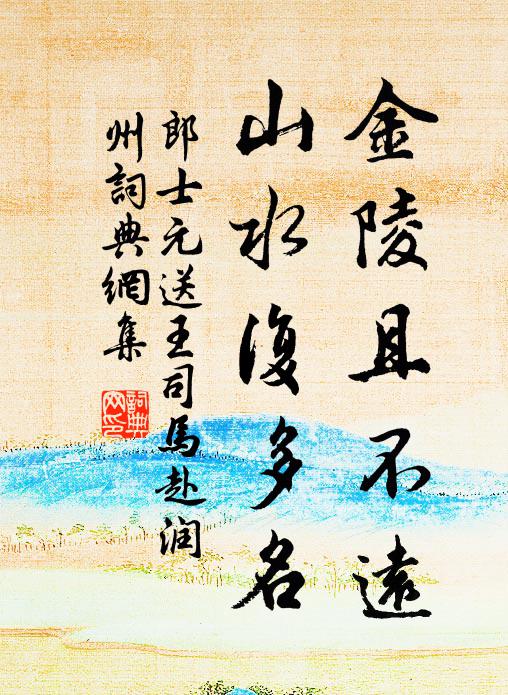 金陵且不遠
山水復多名
郎士元送王司馬赴润
州詞典網集
詞典
网印